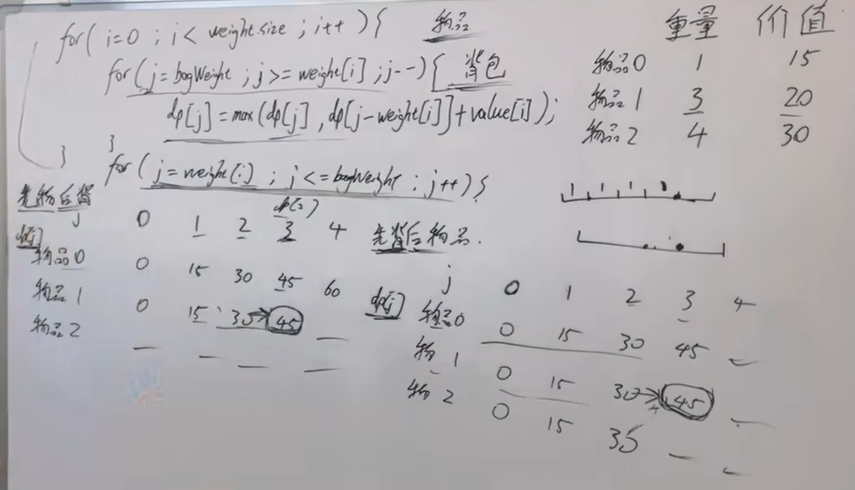 for( i=0 ; i < weight.size ; i++ ){ 物品
for( j=bagWeight ; j>= weight[i] ; j--){ 背包
dp[j] = max(dp[j] , dp[j-weight[i]]+value[i]);
}
}
for( j=weight[i] ; j<=bagWeight ; j++){
重量 价值
物品0 1 15
物品1 3 20
物品2 4 30
先物后背
j 0 1 2 3 4
dp[j]
物品0 0 15 30 45 60
物品1 0 15 30 45
物品2
先背后物品.
j 0 1 2 3 4
dp[j]
物品0 0 15 30 45
物 1 0 15 30 45
物 2 0 15 30